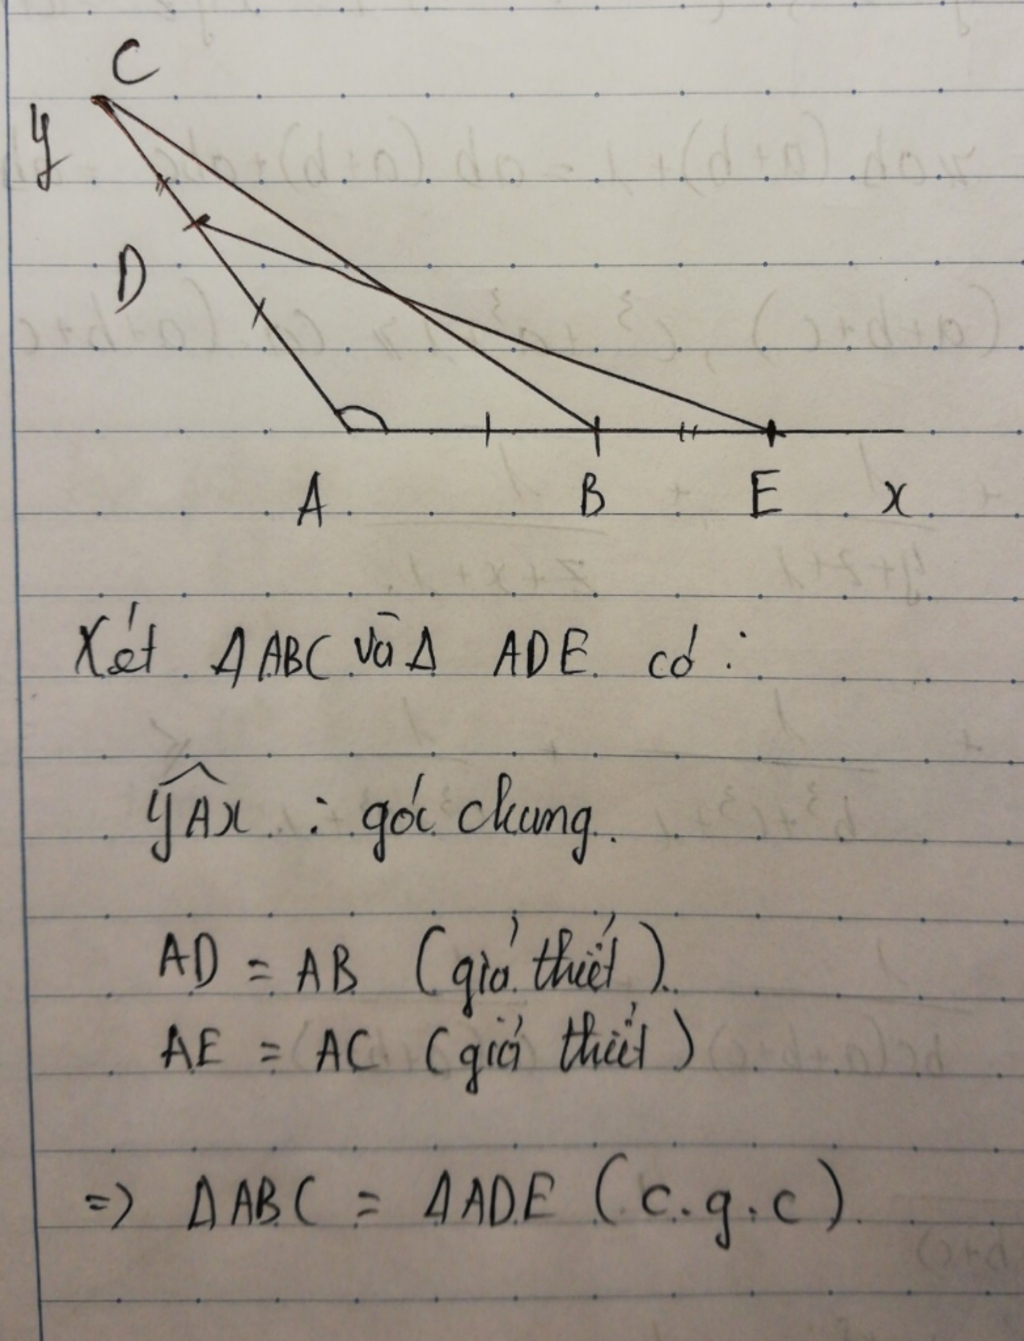 C
y
D
A B E x
Xét ΔABC và Δ ADE có :
yAx : góc chung.
AD = AB (giả thiết).
AE = AC (giả thiết)
=> ΔABC = ΔADE (c.g.c)